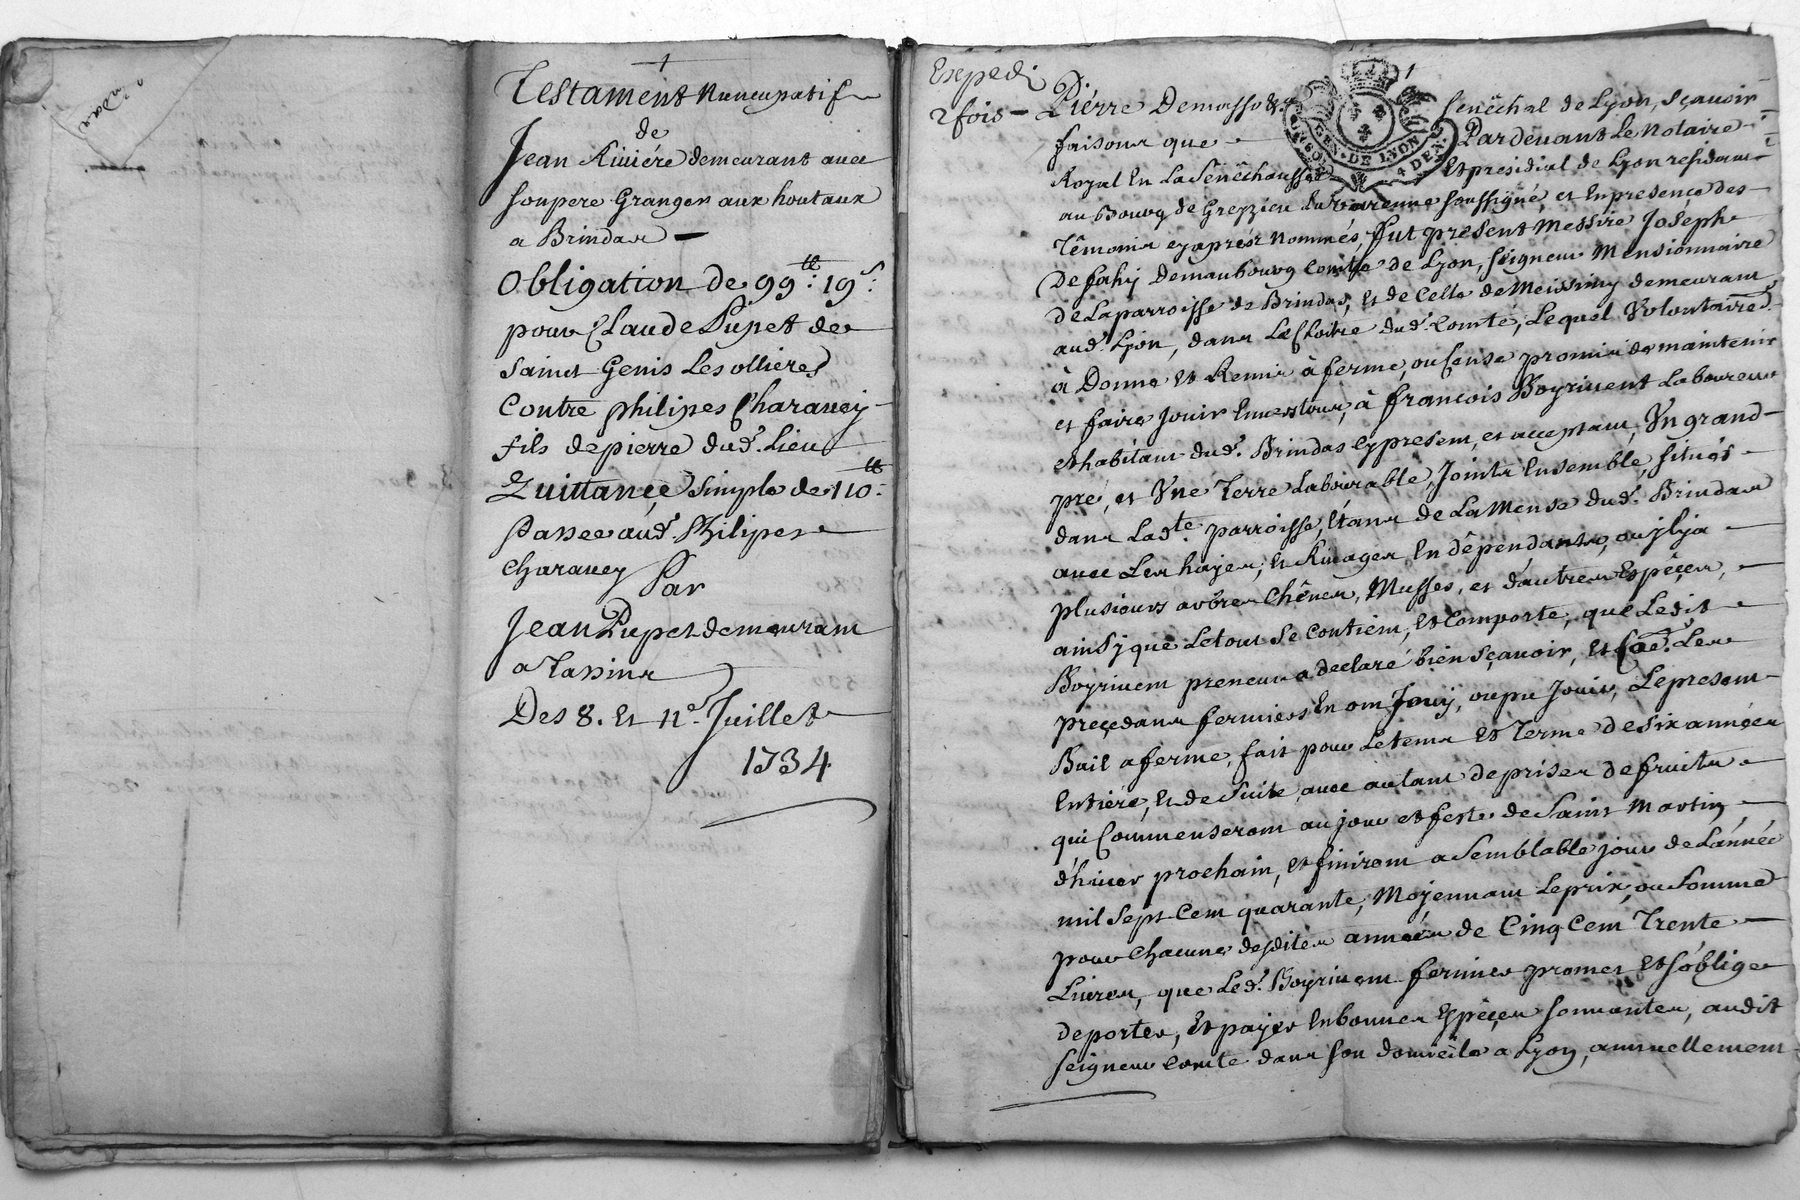 Brindas
Testament Nuncupatif
de
Jean Riuiére demeurant auec
son pere Granger aux hoŭtaux
a Brindas —
Obligation de 99.tt 19.s
pour Claude Pupet de
Saint Genis Les ollieres
Contre philipes Charauey
fils de pierre dud. Lieu
Quittançe simple de 110.tt
Passee aud. Philipes
Charauey Par
Jean Pupet demeurant
a Tassins
Des 8. Et 11.e Juillet
1734
Expedié
2 fois — Pierre Demasso &.a Senêchal de Lyon, sçauoir
faisons que — Pardeuant Le Notaire
GEN. DE LYON
4 DEN.
Royal En La Sênêchaussée Et presidial de Lyon residant
au Bourg de Greyzieu La Varenne soussigné, et En presençe des
Têmoins cy aprés nommés, fut present Messire Joseph
De fahy demaubourg Comte de Lyon, seigneur Mansionnaire
de La parroisse de Brindas, et de Celle de Meissimy demeurant
aud. Lyon, dans Le Cloitre dud. Comté, Lequel Volontairem.t
à Donné et Remis à ferme, ou Cense promis de maintenir
et faire Jouir Enuers tous, à françois Boyriuent Laboureur
et habitant dud. Brindas cy present, et acceptant, Un grand
pré, et Une Terre Labourable, Joints Ensemble, situés
dans Lad.te parroisse, Etans de La Mense dud. Brindas
auec Les hayes, et Riuages En dêpendants, ou jl ya
plusieurs arbres Chênes, Musses, et d'autres Espêçes,
ainsy que Le tout Se Contient, et Comporte, que Ledit
Boyriuent preneur a declaré bien Sçauoir, et Co͞e. Les
preçedans fermiers En ont Jouy, ou pu Jouir, Le present
Bail a ferme, fait pour Le tems et Terme de Six années
Entiere, et de Suite auec autant de prises de fruits
qui Commenseront au jour et feste de Saint Martin
d'hiuer prochain, et finiront a Semblable jour de L'année
mil Sept Cent quarante, Moyennant Le prix, ou Somme
pour Chacune desdites années de Cinq Cent Trente
Liures, que Led. Boyriuent fermier promet et s'oblige
de porter, Et payer En bonnes Espêçes sonnantes, audit
Seigneur Comte dans son domicile a Lyon, annuellement